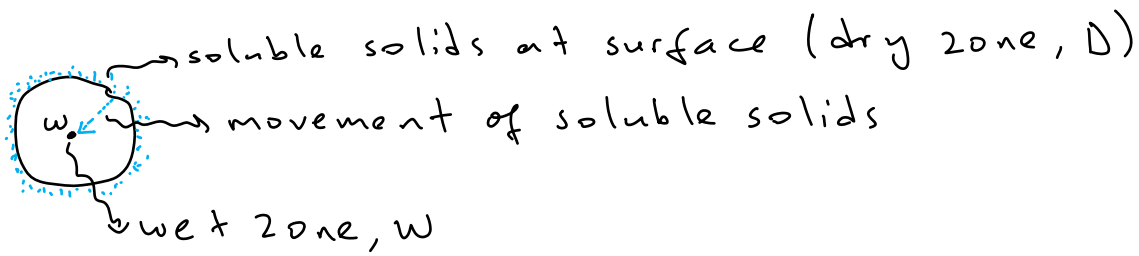 soluble solids at surface (dry zone, D)
W
movement of soluble solids
wet zone, W